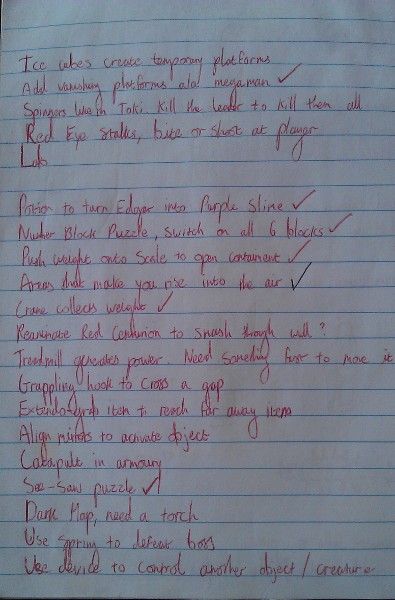 Ice cubes create temporary platforms
Add vanishing platforms ala megaman ✓
Spinners like in Toki. Kill the leader to kill them all
Red Eye Stalks, bite or shoot at player
Lab
Potion to turn Edgar into Purple Slime ✓
Number Block Puzzle, switch on all 6 blocks ✓
Push weight onto Scale to open containment ✓
Areas that make you rise into the air ✓
Crane collects weight ✓
Reanimate Red Centurion to smash through wall?
Treadmill generates power. Need something to move it
Grappling hook to cross a gap
Extendo-grab item to reach far away item
Align mirrors to activate object
Catapult in armoury
See-Saw puzzle ✓
Dark Map, need a torch
Use spring to defeat boss
Use device to control another object / creature